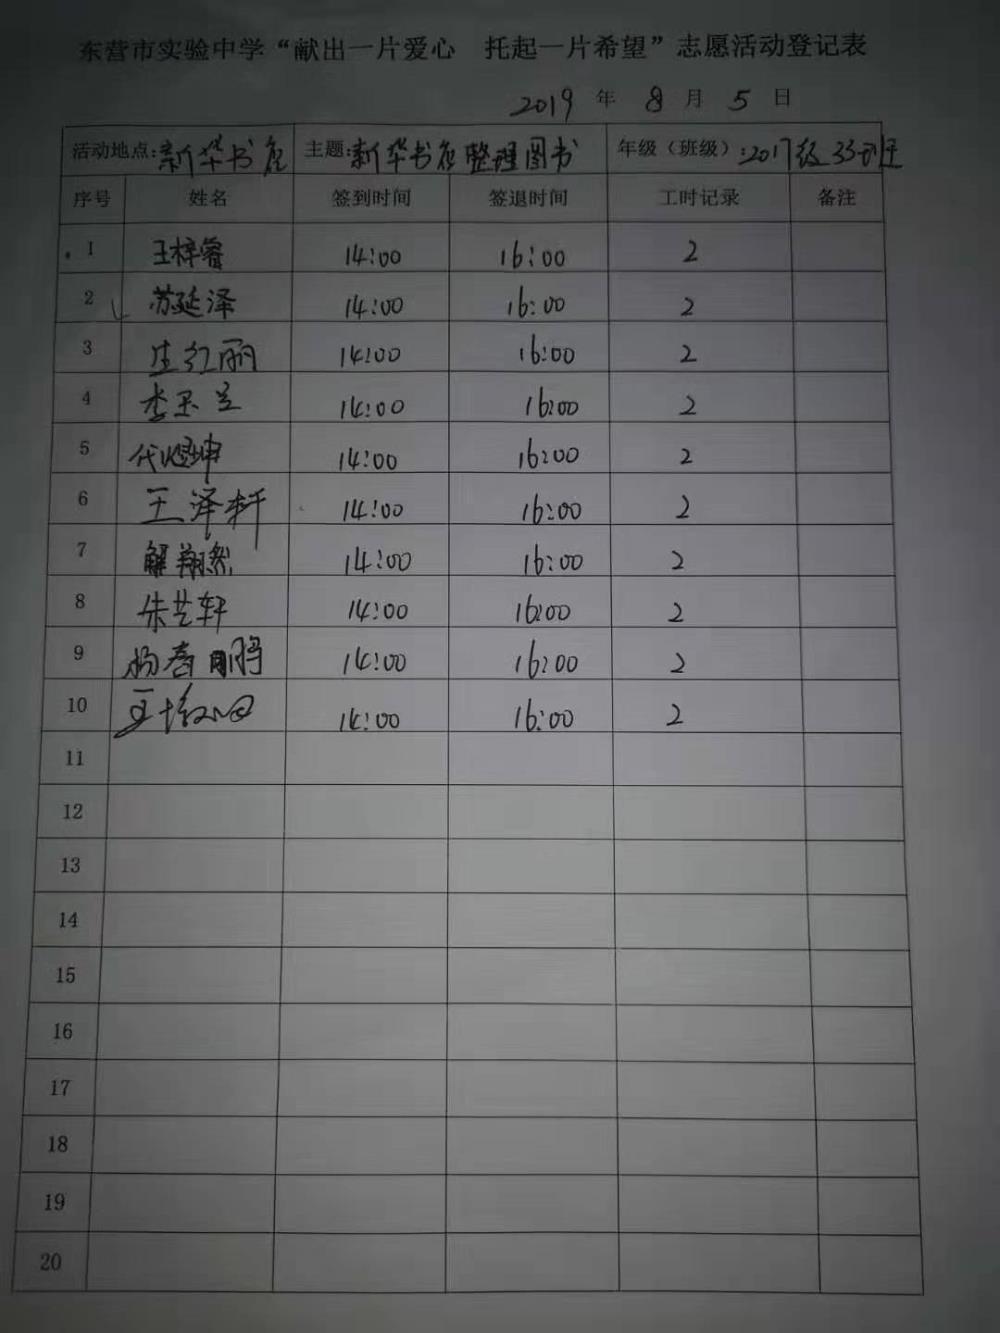 东营市实验中学“献出一片爱心 托起一片希望”志愿活动登记表
2019 年 8 月 5 日
活动地点:新华书店 主题:新华书店整理图书 年级（班级）:2017级33班
序号 姓名 签到时间 签退时间 工时记录 备注
1 王梓睿 14:00 16:00 2
2 苏延泽 14:00 16:00 2
3 生红丽 14:00 16:00 2
4 李玉兰 14:00 16:00 2
5 代 坤 14:00 16:00 2
6 王泽轩 14:00 16:00 2
7 解翔然 14:00 16:00 2
8 朱艺轩 14:00 16:00 2
9 杨春鹏 14:00 16:00 2
10 王 14:00 16:00 2
11
12
13
14
15
16
17
18
19
20